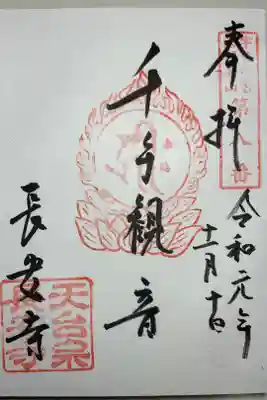 奉拝
令和元年
十一月十日
千手観音
長安寺
天台宗
長安寺